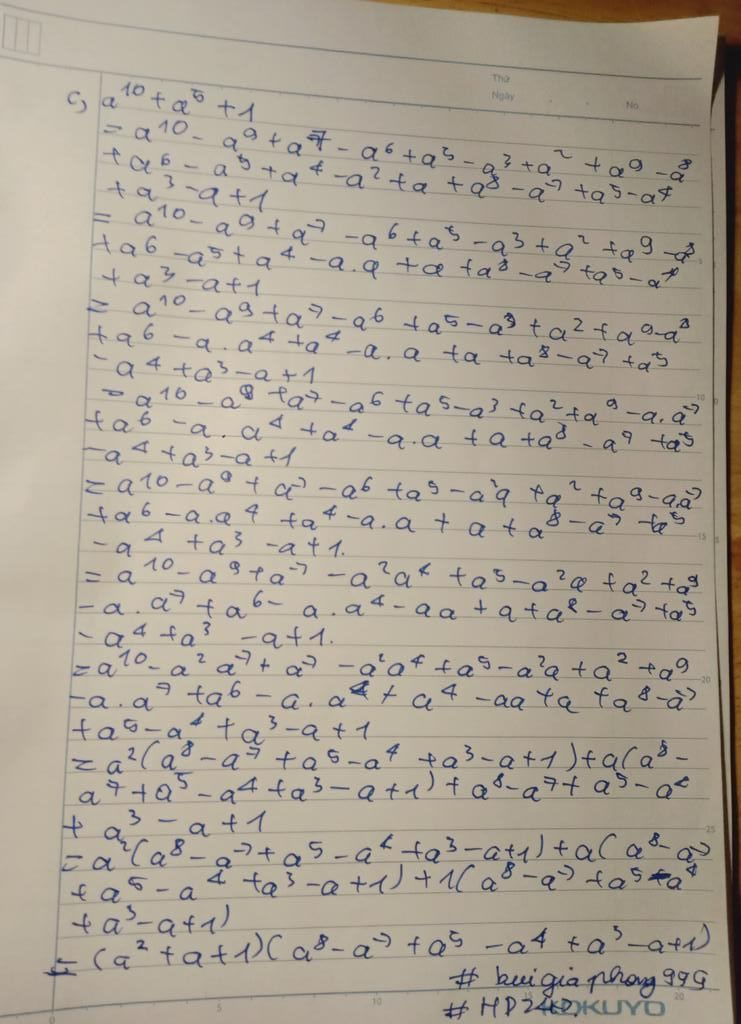 Thứ
Ngày
No.
c, a¹⁰ + a⁵ + 1
= a¹⁰ - a⁹ + a⁷ - a⁶ + a⁵ - a³ + a² + a⁹ - a⁸
+ a⁶ - a⁵ + a⁴ - a² + a + a⁸ - a⁷ + a⁵ - a⁴
+ a³ - a + 1
= a¹⁰ - a⁹ + a⁷ - a⁶ + a⁵ - a³ + a² + a⁹ - a⁸
+ a⁶ - a⁵ + a⁴ - a.a + a + a⁸ - a⁷ + a⁵ - a⁴
+ a³ - a + 1
= a¹⁰ - a⁹ + a⁷ - a⁶ + a⁵ - a³ + a² + a⁹ - a⁸
+ a⁶ - a.a⁴ + a⁴ - a.a + a + a⁸ - a⁷ + a⁵
- a⁴ + a³ - a + 1
= a¹⁰ - a⁹ + a⁷ - a⁶ + a⁵ - a³ + a² + a⁹ - a.a⁷
+ a⁶ - a.a⁴ + a⁴ - a.a + a + a⁸ - a⁷ + a⁵
- a⁴ + a³ - a + 1
= a¹⁰ - a⁹ + a⁷ - a⁶ + a⁵ - a²a + a² + a⁹ - a.a⁷
+ a⁶ - a.a⁴ + a⁴ - a.a + a + a⁸ - a⁷ + a⁵
- a⁴ + a³ - a + 1.
= a¹⁰ - a⁹ + a⁷ - a²a⁴ + a⁵ - a²a + a² + a⁹
- a.a⁷ + a⁶ - a.a⁴ - aa + a + a⁸ - a⁷ + a⁵
- a⁴ + a³ - a + 1.
= a¹⁰ - a²a⁷ + a⁷ - a²a⁴ + a⁵ - a²a + a² + a⁹
- a.a⁷ + a⁶ - a.a⁴ + a⁴ - aa + a + a⁸ - a⁷
+ a⁵ - a⁴ + a³ - a + 1
= a²(a⁸ - a⁷ + a⁵ - a⁴ + a³ - a + 1) + a(a⁸ -
a⁷ + a⁵ - a⁴ + a³ - a + 1) + a⁸ - a⁷ + a⁵ - a⁴
+ a³ - a + 1
= a²(a⁸ - a⁷ + a⁵ - a⁴ + a³ - a + 1) + a(a⁸ - a⁷
+ a⁵ - a⁴ + a³ - a + 1) + 1(a⁸ - a⁷ + a⁵ - a⁴
+ a³ - a + 1)
= (a² + a + 1)(a⁸ - a⁷ + a⁵ - a⁴ + a³ - a + 1)
# buigiaphong999
KOKUYO